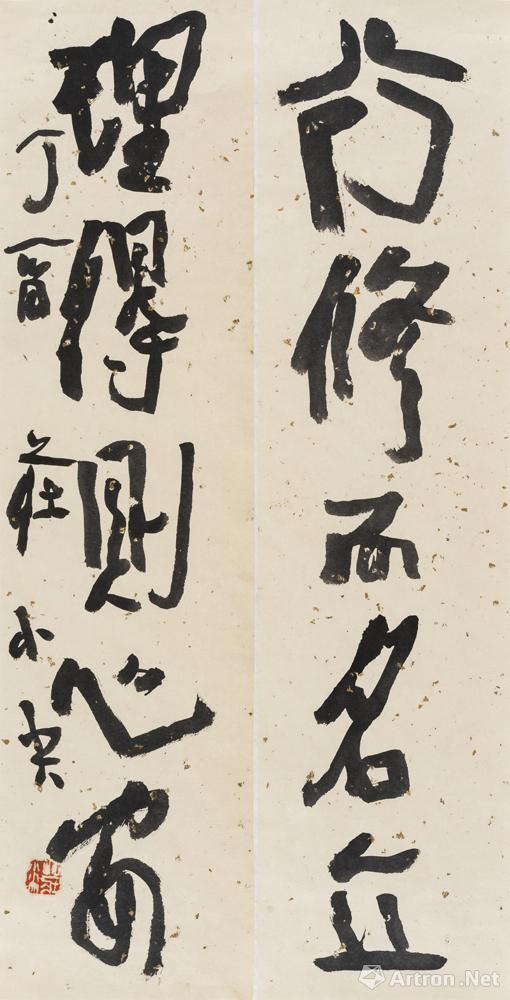 行修而名立
理得則心安
丁酉莊小尖
Artron.Net